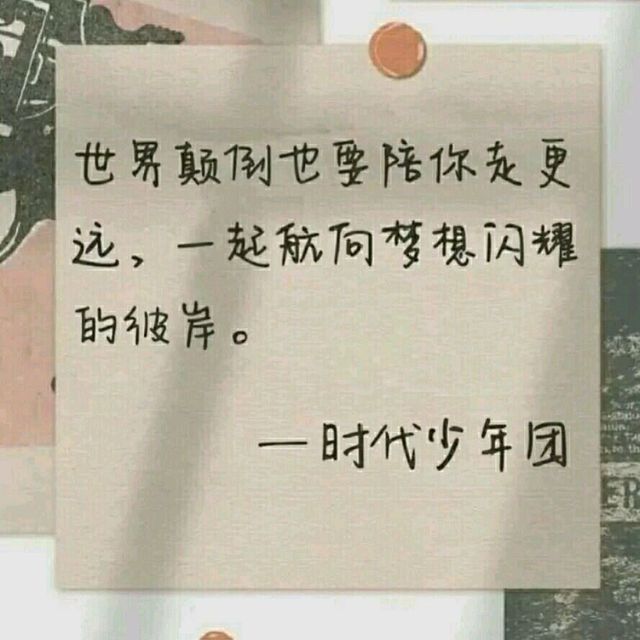 世界颠倒也要陪你走更
远，一起航向梦想闪耀
的彼岸。
—时代少年团